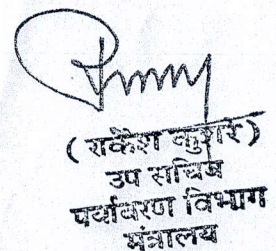 (राकेश कुशरे)
उप सचिव
पर्यावरण विभाग
मंत्रालय